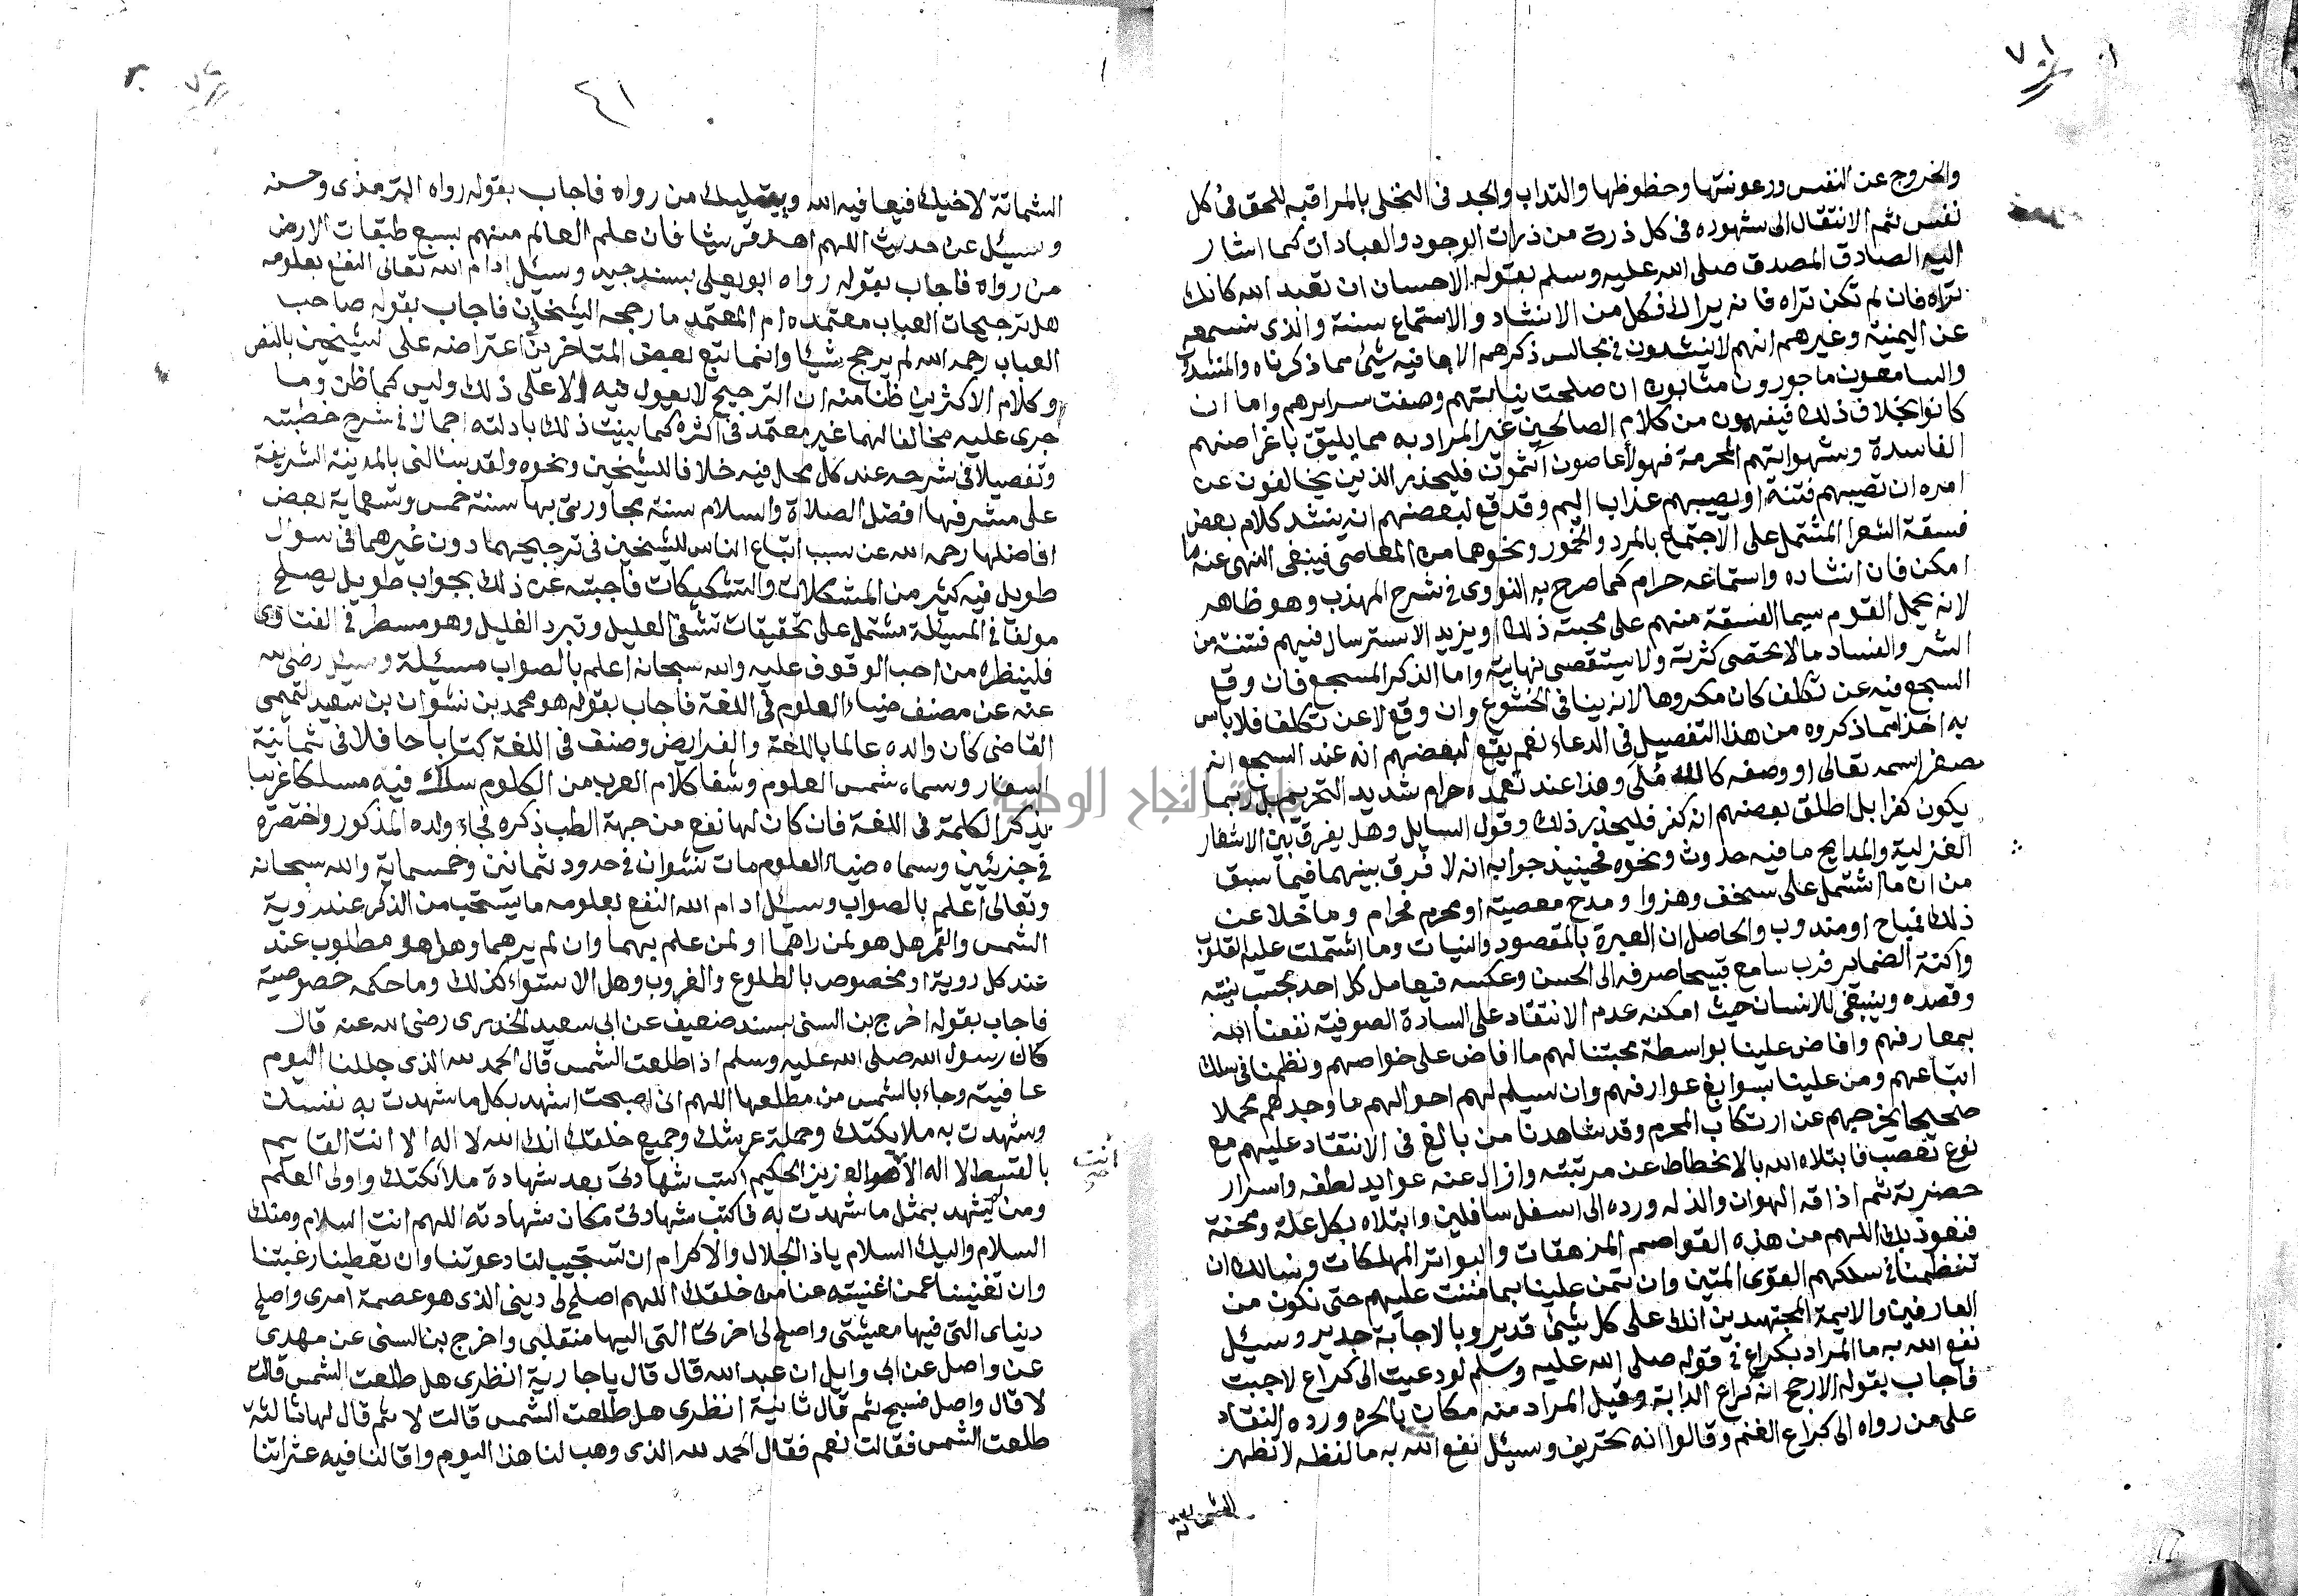 والخروج عن النفس ورعونتها وحظوظها والتداب والجد في التخلى بالمراقبه للحق في كل
نفس ثم الانتقال الى شهوده في كل ذرة من ذرات الوجود والعبادات كما اشار
اليه الصادق المصدق صلى الله عليه وسلم بقوله الاحسان ان تعبد الله كانك
تراه فان لم تكن تراه فانه يراك فكل من الانشاد والاستماع سنة والذى نسمعه
عن اليمنية وغيرهم انهم لا ينشدون في مجالس ذكرهم الا ما فيه شيئ مما ذكرناه والمنشدون
والسامعون ماجورون مثابون ان صلحت نياتهم وصفت سرايرهم واما ان
كانوا بخلاف ذلك فيفهمون من كلام الصالحين غير المراد به مما يليق باغراضهم
الفاسدة وشهواتهم المحرمة فهولا عاصون آثمون فليحذر الذين يخالفون عن
امره ان تصيبهم فتنة او يصيبهم عذاب اليم وقد قع لبعضهم انه ينشد كلام بعض
فسقة الشعرا المشتمل على الاجتماع بالمرد والخمور ونحوهما من المعاصي فينبغى النهى عنه ما
امكن فان انشاده واستماعه حرام كما صرح به النووى في شرح المهذب وهو ظاهر
لانه يحمل القوم سيما الفسقة منهم على محبة ذلك او يزيد الاسترسال فيهم فتنة من
الشر والفساد ما لا يحصى كثرته ولا يستقصى نهايته واما الذكر المسجع فان وقع
السجع فيه عن تكلف كان مكروها لانه ينافى الخشوع وان وقع لا عن تكلف فلا باس
به اخذا مما ذكروه من هذا التفصيل في الدعاء نعم يقع لبعضهم انه عند السجع انه
يصغر اسمه تعالى او وصفه كالله وهذا عند تعمده حرام شديد التحريم بل ربما
يكون كفرا بل اطلق بعضهم انه كفر فليحذر ذلك وقول السايل وهل يفرق بين الاشعار
الغزلية والمدايح ما فيه حدوث ونحوه فحينيذ جوابه انه لا فرق بينهما فيما سبق
من ان ما اشتمل على سخف وهزوا ومدح معصية او محرم فحرام وما خلا عن
ذلك فمباح او مندوب والحاصل ان العبرة بالمقصود والنيات وما اشتملت عليه القلوب
واكنته الضماير فرب سامع قبيحا صرفه الى الحسن وعكسه فيعامل كل احد بحسب نيته
وقصده وينبغى للانسان حيث امكنه عدم الانتقاد على السادة الصوفية نفعنا الله
بمعارفهم وافاض علينا بواسطة محبتنا لهم ما افاض على خواصهم ونظمنا في سلك
اتباعهم ومن علينا بسوابغ عوارفهم وان يسلم لهم احوالهم ما وجد لهم محملا
صحيحا يخرجهم عن ارتكاب المحرم وقد شاهدنا من بالغ في الانتقاد عليهم مع
نوع تعصب فابتلاه الله بالانحطاط عن مرتبته وازال عنه عوايد لطفه واسرار
حضرته ثم اذاقه الهوان والذله ورده الى اسفل سافلين وابتلاه بكل علة ومحنة
فنعوذ بك اللهم من هذه القواصم المزهقات والبواتر المهلكات ونسالك ان
تنظمنا في سلكهم القوى المتين وان تمن علينا بما مننت عليهم حتى نكون من
العارفين والايمة المجتهدين انك على كل شيئ قدير وبالاجابة جدير وسيئل
نفع الله به ما المراد بكراع في قوله صلى الله عليه وسلم لو دعيت الى كراع لاجبت
فاجاب بقوله الارجح انه كراع الدابة وقيل المراد منه مكان بالحره ورده النقاد
على من رواه الى كراع الغنم وقالوا انه تحريف وسيئل نفع الله به ما لفظه لا تظهر
الشماتة
٤١
الشماتة لاخيك فيعافيه الله ويبتليك من رواه فاجاب بقوله رواه الترمذى وحسنه
وسيئل عن حديث اللهم اهد قريشا فان علم العالم منهم يسع طبقات الارض
من رواه فاجاب بقوله رواه ابو يعلى بسند جيد وسيئل ادام الله تعالى النفع بعلومه
هل ترجيحات العباب معتمده ام المعتمد ما رجحه الشيخان فاجاب بقوله صاحب
العباب رحمه الله لم يرجح شيئا وانما تبع بعض المتاخرين اعتراضه على الشيخين بالنص
وكلام الاكثرين ظنا منه ان الترجيح لا يعول فيه الا على ذلك وليس كما ظن وما
جرى عليه مخالفا لهما غير معتمد في اكثره كما بينت ذلك بادلته اجمالا في شرح خطبته
وتفصيلا في شرحه عند كل محل فيه خلافا للشيخين ونحوه ولقد سالنى بالمدينة الشريفة
على مشرفها افضل الصلاة والسلام سنة مجاورتى بها سنة خمس وتسعماية بعض
افاضلها رحمه الله عن سبب اتباع الناس للشيخين في ترجيحهما دون غيرهما في سوال
طويل فيه كثير من المشكلات والتشكيكات فاجبته عن ذلك بجواب طويل يصلح
مولفا في المسيئلة مشتمل على تحقيقات تشفى العليل وتبرد الغليل وهو مسطر في الفتاوى
فلينظره من احب الوقوف عليه والله سبحانه اعلم بالصواب مسيئلة وسيئل رضى الله
عنه عن مصنف ضياء العلوم في اللغة فاجاب بقوله هو محمد بن نشوان بن سعيد التميمى
القاضى كان والده عالما باللغة والفرايض وصنف في اللغة كتابا حافلا في ثمانية
اسفار وسماه شمس العلوم وشفا كلام العرب من الكلوم سلك فيه مسلكا غريبا
يذكر الكلمة في اللغة فان كان لها نفع من جهة الطب ذكره فجاء ولده المذكور واختصره
في جزئين وسماه ضياء العلوم مات نشوان في حدود ثمانين وخمسماية والله سبحانه
وتعالى اعلم بالصواب وسيئل ادام الله النفع بعلومه ما يستحب من الذكر عند روية
الشمس والقمر هل هو لمن راهما او لمن علم بهما وان لم يرهما وهل هو مطلوب عند
عند كل روية او مخصوص بالطلوع والغروب وهل الاستواء كذلك وما حكمه خصوصية
فاجاب بقوله اخرج بن السنى بسند ضعيف عن ابى سعيد الخدرى رضى الله عنه قال
كان رسول الله صلى الله عليه وسلم اذا طلعت الشمس قال الحمد لله الذى جللنا اليوم
عافيته وجاء بالشمس من مطلعها اللهم انى اصبحت اشهد بكل ما شهدت به نفسك
وشهدت به ملايكتك وحملة عرشك وجميع خلقك انك الله لا اله الا انت القايم
أنت
صح
بالقسط لا اله الا هو العزيز الحكيم اكتب شهادتى بعد شهادة ملائكتك واولى العلم
ومن ليشهد بمثل ما شهدت به فاكتب شهادتى مكان شهادته اللهم انت السلام ومنك
السلام واليك السلام ياذا الجلال والاكرام ان تستجيب لنا دعوتنا وان تعطينا رغبتنا
وان تغنينا عمن اغنيته عنا من خلقك اللهم اصلح لى دينى الذى هو عصمة امرى واصلح
دنياى التى فيها معيشتى واصلح لى اخرتى التى اليها منقلبى واخرج بن السنى عن مهدى
عن واصل عن ابى وايل ان عبد الله قال قال يا جارية انظرى هل طلعت الشمس قالت
لا قال واصل فسبح ثم قال ثانية انظرى هل طلعت الشمس قالت لا ثم قال لها ثالثة
طلعت الشمس فقالت نعم فقال الحمد لله الذى وهب لنا هذا اليوم واقالنا فيه عثراتنا